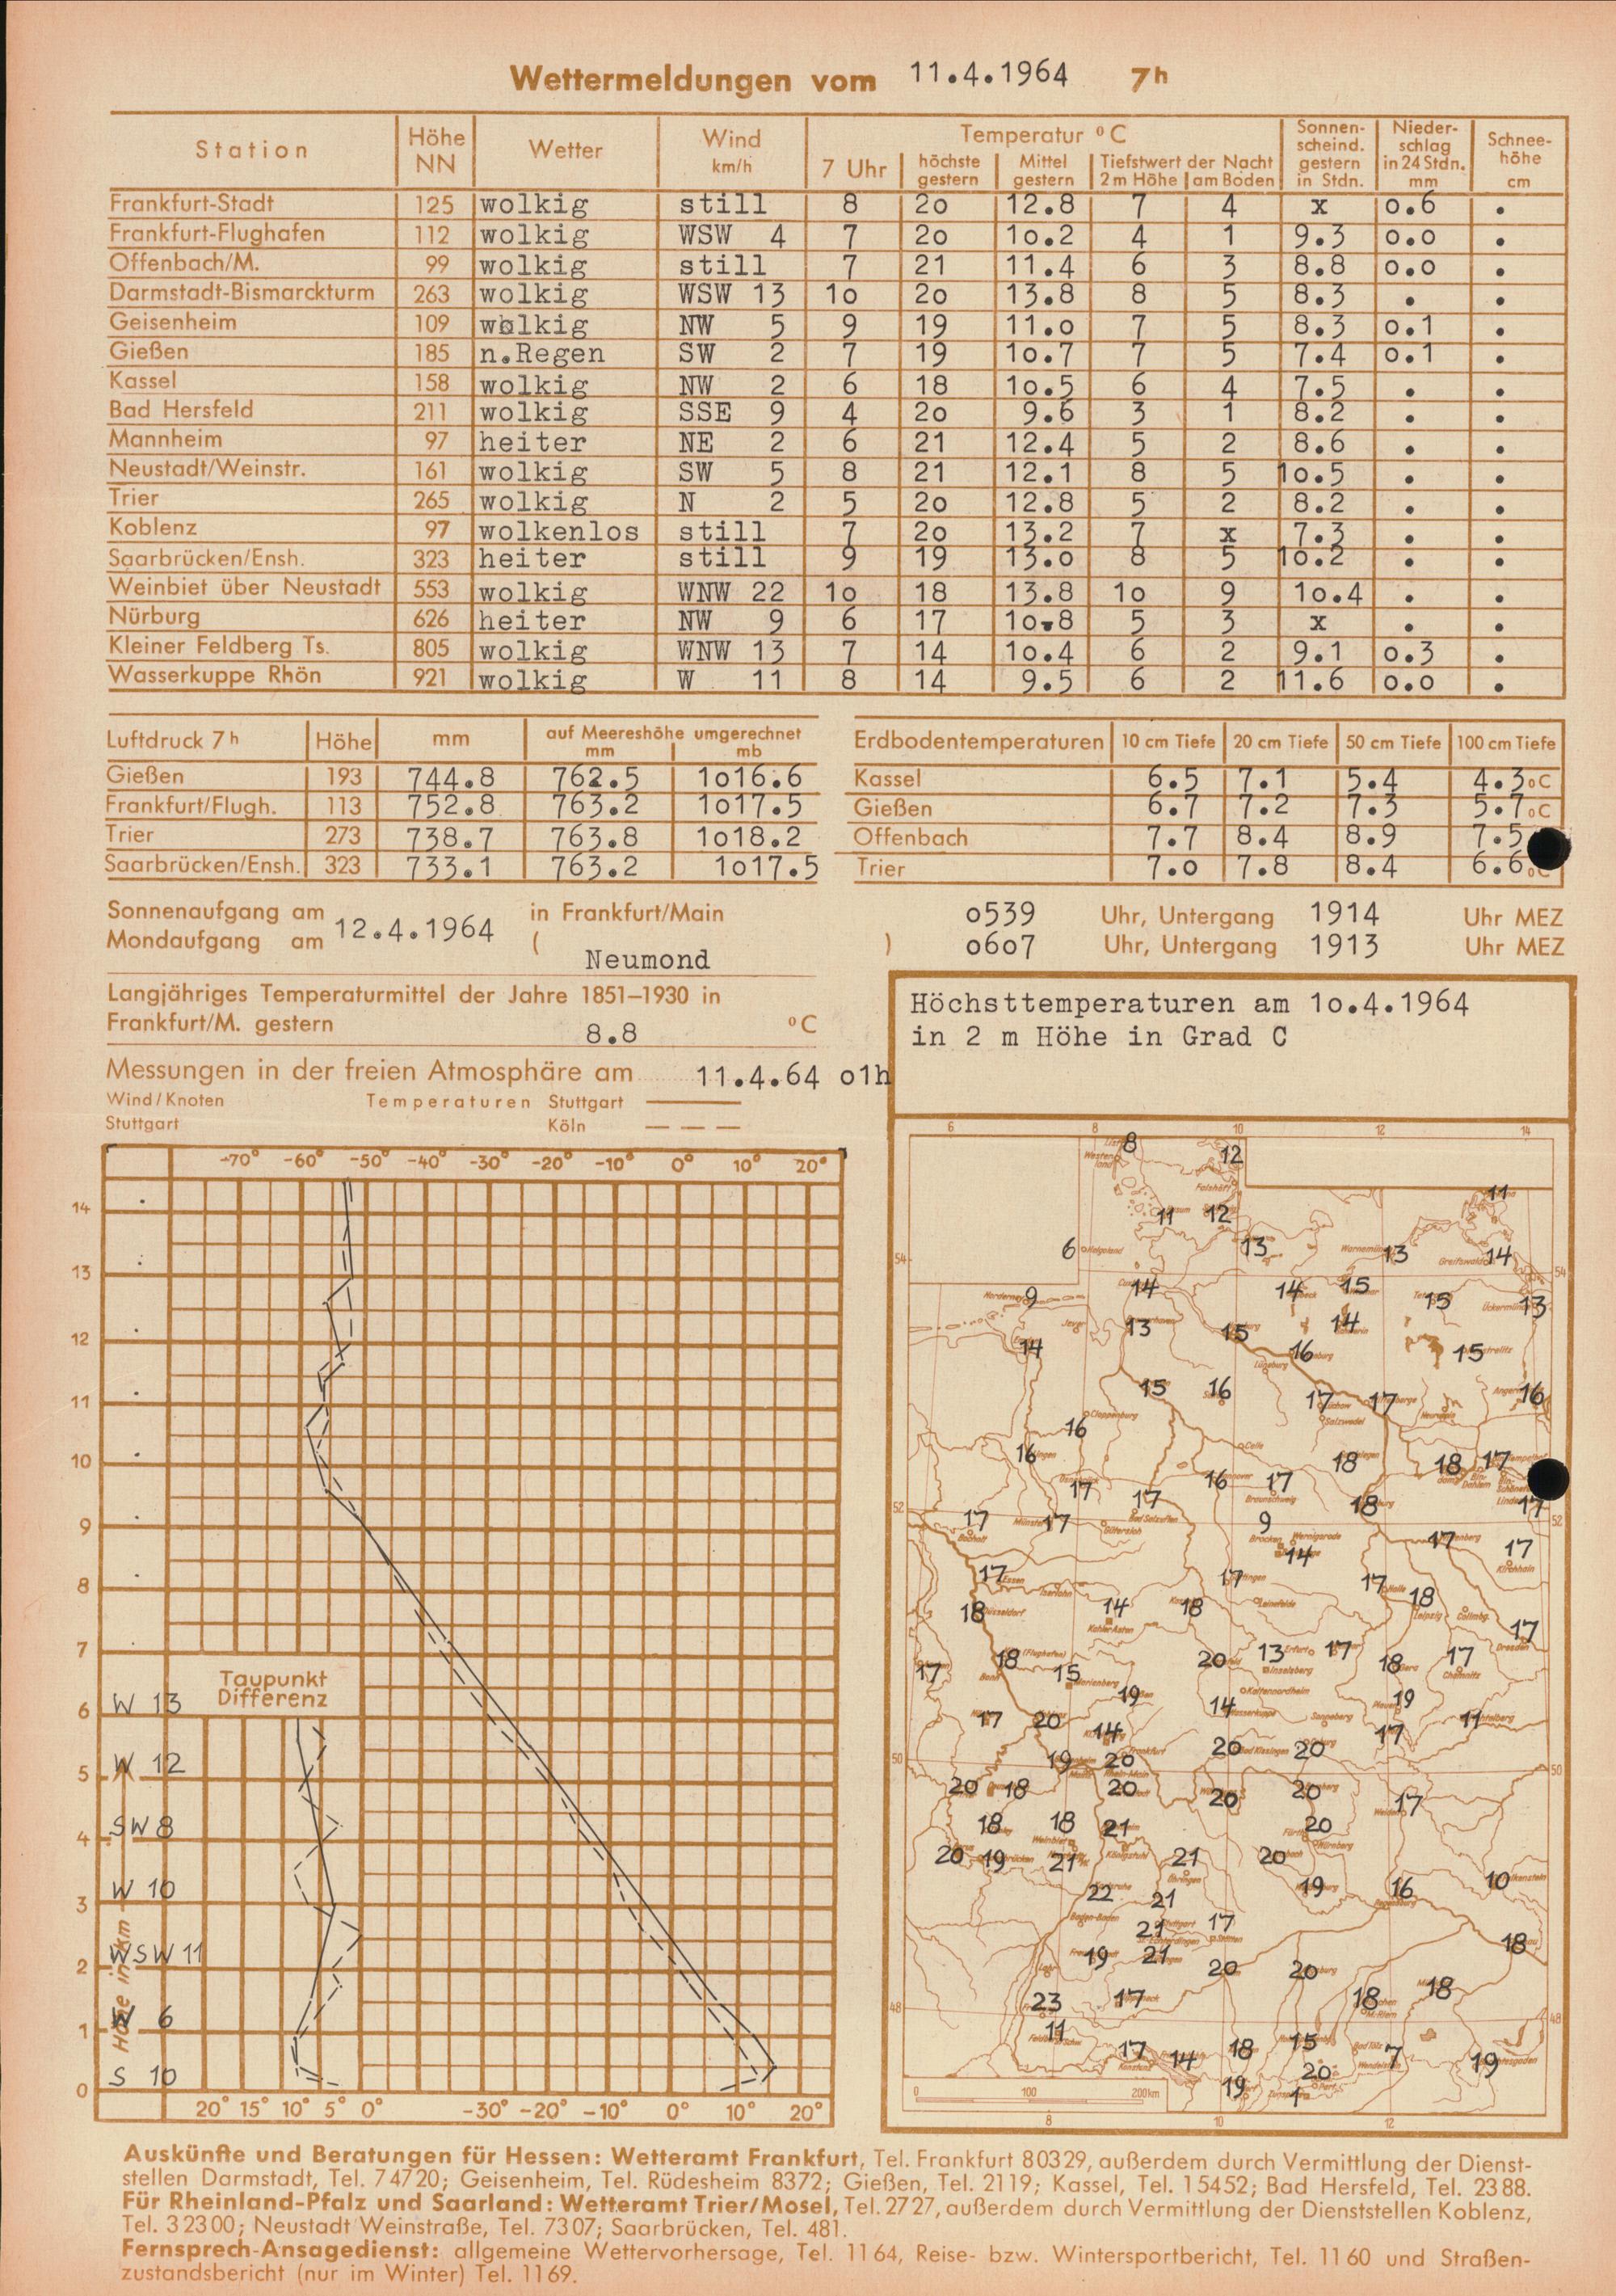 Wettermeldungen vom 11.4.1964 7h
Station Höhe NN Wetter Wind km/h Temperatur °C Sonnenscheind. gestern in Stdn. Niederschlag in 24 Stdn. mm Schneehöhe cm
7 Uhr höchste gestern Mittel gestern Tiefstwert der Nacht 2 m Höhe am Boden
Frankfurt-Stadt 125 wolkig still 8 2o 12.8 7 4 x o.6 .
Frankfurt-Flughafen 112 wolkig WSW 4 7 2o 1o.2 4 1 9.3 o.o .
Offenbach/M. 99 wolkig still 7 21 11.4 6 3 8.8 o.o .
Darmstadt-Bismarckturm 263 wolkig WSW 13 1o 2o 13.8 8 5 8.3 . .
Geisenheim 109 wolkig NW 5 9 19 11.o 7 5 8.3 o.1 .
Gießen 185 n.Regen SW 2 7 19 1o.7 7 5 7.4 o.1 .
Kassel 158 wolkig NW 2 6 18 1o.5 6 4 7.5 . .
Bad Hersfeld 211 wolkig SSE 9 4 2o 9.6 3 1 8.2 . .
Mannheim 97 heiter NE 2 6 21 12.4 5 2 8.6 . .
Neustadt/Weinstr. 161 wolkig SW 5 8 21 12.1 8 5 1o.5 . .
Trier 265 wolkig N 2 5 2o 12.8 5 2 8.2 . .
Koblenz 97 wolkenlos still 7 2o 13.2 7 x 7.3 . .
Saarbrücken/Ensh. 323 heiter still 9 19 13.o 8 5 1o.2 . .
Weinbiet über Neustadt 553 wolkig WNW 22 1o 18 13.8 1o 9 1o.4 . .
Nürburg 626 heiter NW 9 6 17 1o.8 5 3 x . .
Kleiner Feldberg Ts. 805 wolkig WNW 13 7 14 1o.4 6 2 9.1 o.3 .
Wasserkuppe Rhön 921 wolkig W 11 8 14 9.5 6 2 11.6 o.o .
Luftdruck 7h Höhe mm auf Meereshöhe umgerechnet mm mb
Gießen 193 744.8 762.5 1o16.6
Frankfurt/Flugh. 113 752.8 763.2 1o17.5
Trier 273 738.7 763.8 1o18.2
Saarbrücken/Ensh. 323 733.1 763.2 1o17.5
Erdbodentemperaturen 10 cm Tiefe 20 cm Tiefe 50 cm Tiefe 100 cm Tiefe
Kassel 6.5 7.1 5.4 4.3 °C
Gießen 6.7 7.2 7.3 5.7 °C
Offenbach 7.7 8.4 8.9 7.5
Trier 7.o 7.8 8.4 6.6 °C
Sonnenaufgang am 12.4.1964 in Frankfurt/Main o539 Uhr, Untergang 1914 Uhr MEZ
Mondaufgang am ( Neumond ) o6o7 Uhr, Untergang 1913 Uhr MEZ
Langjähriges Temperaturmittel der Jahre 1851–1930 in
Frankfurt/M. gestern 8.8 °C
Messungen in der freien Atmosphäre am 11.4.64 o1h
Wind/Knoten Temperaturen Stuttgart
Stuttgart Köln
-70° -60° -50° -40° -30° -20° -10° 0° 10° 20°
14
13
12
11
10
9
8
7
Taupunkt
Differenz
6 W 13
5 W 12
4 SW 8
3 W 10
2 WSW 11
1 W 6
0 S 10
Höhe in km
20° 15° 10° 5° 0° -30° -20° -10° 0° 10° 20°
Höchsttemperaturen am 1o.4.1964
in 2 m Höhe in Grad C
6 8 10 12 14
8 12
11
11 12
6 Helgoland 13 13 14
54 54
14 14 15 15 13
9
13 15 14
14 16 15
15 16 17 17 16
Cloppenburg
16
16 Celle 18 18 17
17 16 17
17 18 17
52 52
17 17 9 17 17
14
17 17 17 18
18 14 18 17
18 20 13 17 18 17
17 15
19 14 19
17 20 14 17 11
20 20
50 50
19 20
20 18 20 20 20 17
18 18 21 20
20 19 21 21 20
22 21 19 16 10
21 17 18
19 21 20 20
23 17 18 18
48 48
11
17 14 18 15 7 19
20
19 1
0 100 200 km
8 10 12
Auskünfte und Beratungen für Hessen: Wetteramt Frankfurt, Tel. Frankfurt 80329, außerdem durch Vermittlung der Dienst-
stellen Darmstadt, Tel. 74720; Geisenheim, Tel. Rüdesheim 8372; Gießen, Tel. 2119; Kassel, Tel. 15452; Bad Hersfeld, Tel. 2388.
Für Rheinland-Pfalz und Saarland: Wetteramt Trier/Mosel, Tel. 2727, außerdem durch Vermittlung der Dienststellen Koblenz,
Tel. 32300; Neustadt Weinstraße, Tel. 7307; Saarbrücken, Tel. 481.
Fernsprech-Ansagedienst: allgemeine Wettervorhersage, Tel. 1164, Reise- bzw. Wintersportbericht, Tel. 1160 und Straßen-
zustandsbericht (nur im Winter) Tel. 1169.